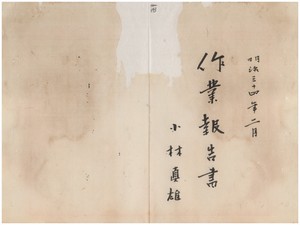 明治三十四年二月
作業報告書
小林直雄